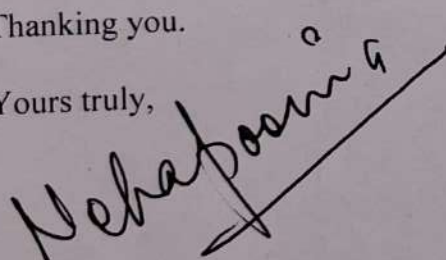 Thanking you.
Yours truly,
Nehapoonia